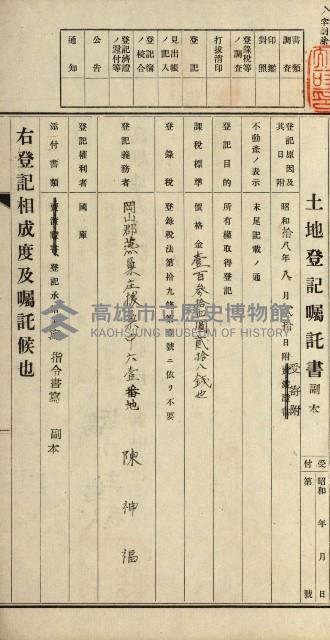 八字削除
書類調査
印鑑對照
登錄稅等ノ調査
打拔濟印
登記
見出帳ノ記入
登記簿ノ校合
登記濟證ノ還付等
公告
通知
土地登記囑託書 副本
受付
昭和 年 月 日
第 號
登記原因及其日附
昭和拾八年八月
日附
受寄附
不動產ノ表示
末尾記載ノ通
登記目的
所有權取得登記
課稅標準
價格金壹百參拾
貳拾八錢也
登錄稅
登錄稅法第拾九條
號ニ依リ不要
登記義務者
岡山郡燕巢庄
六壹番地
陳神福
登記權利者
國庫
添付書類
登記承
指令書寫 副本
右登記相成度及囑託候也
高雄市立歷史博物館
KAOHSIUNG MUSEUM OF HISTORY